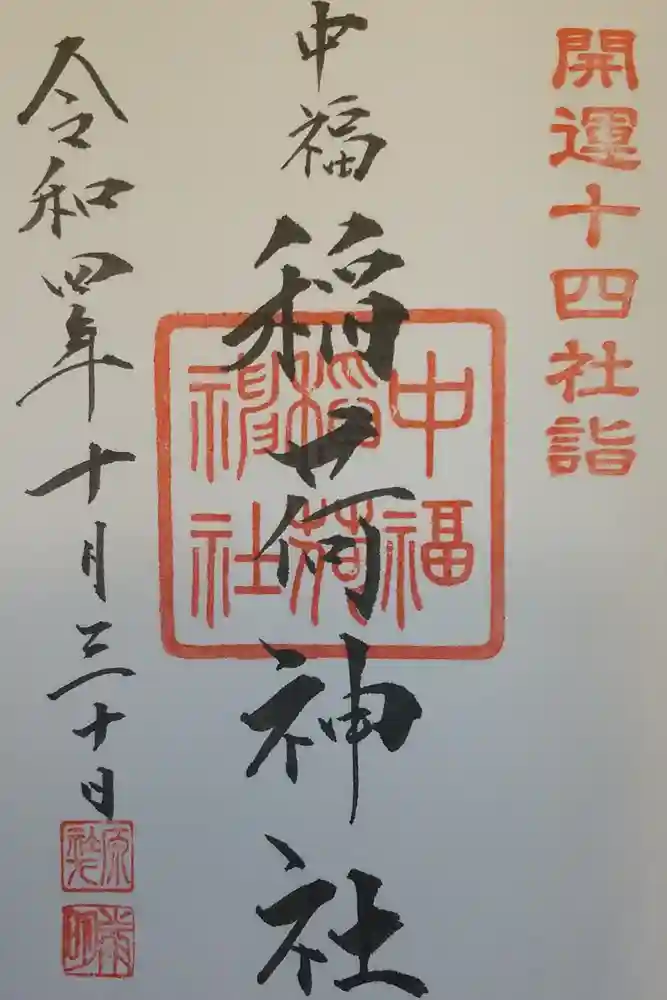 開運十四社詣
中福稲荷神社
中福
稲荷
神社
令和四年十月三十日